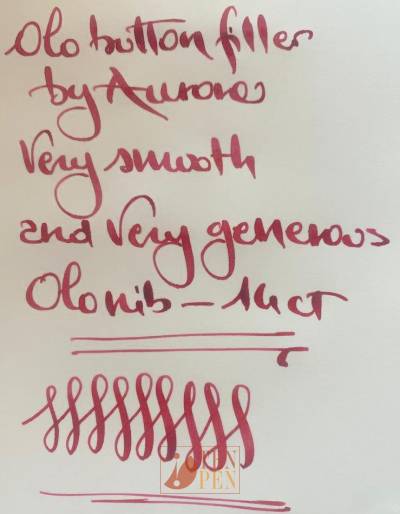 Olo button filler
by Aurora
Very smooth
and Very generous
Olo nib – 14 ct
PEN